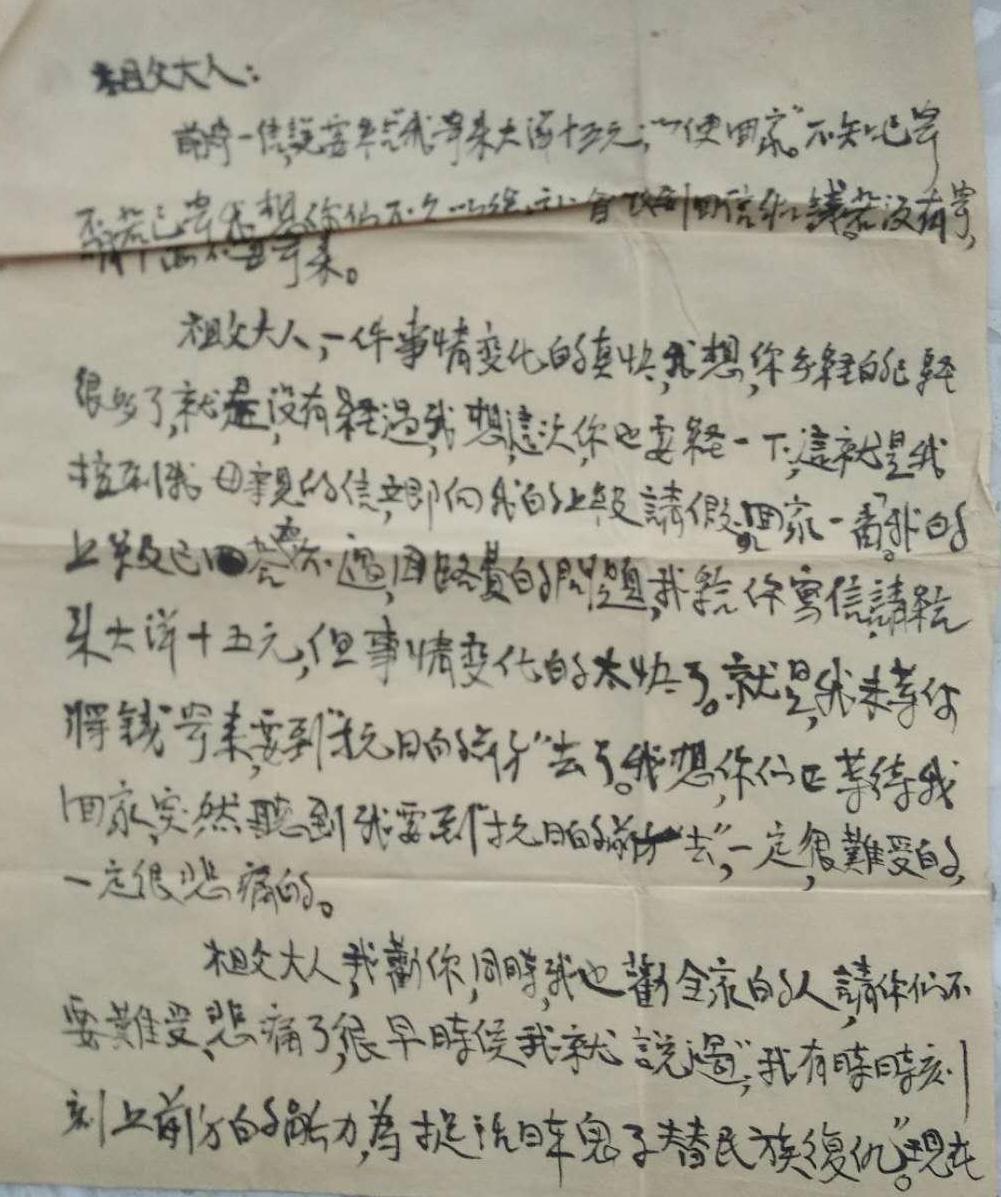 祖父大人：
前寄一信，說要给我寄来大洋十五元，“以便回家”。不知已寄
否，若已寄我想你们不久 會收到回信 錢。若没有寄，
寄来。
祖父大人，一件事情变化的真快，我想，你多経的已経
很多了，就是没有経過，我想這次你也要経一下，這就是我
接到我母親的信，立即向我的上級請假，“回家一番”。我的
上級已答應，不過，因路費的問題，我給你寫信，請給
来大洋十五元，但事情变化的太快了。就是，我未等你
將錢寄来，要到“抗日的前方”去了。我想，你们正等待我
回家，突然聽到我要到“抗日的前方去”，一定很難受的，
一定很悲痛的。
祖父大人，我勸你，同時，我也勸全家的人，請你们不
要難受、悲痛了，很早時侯我就說過“，我有時時刻
刻上前方的能力，為捉活日本鬼子替民族復仇”。現在